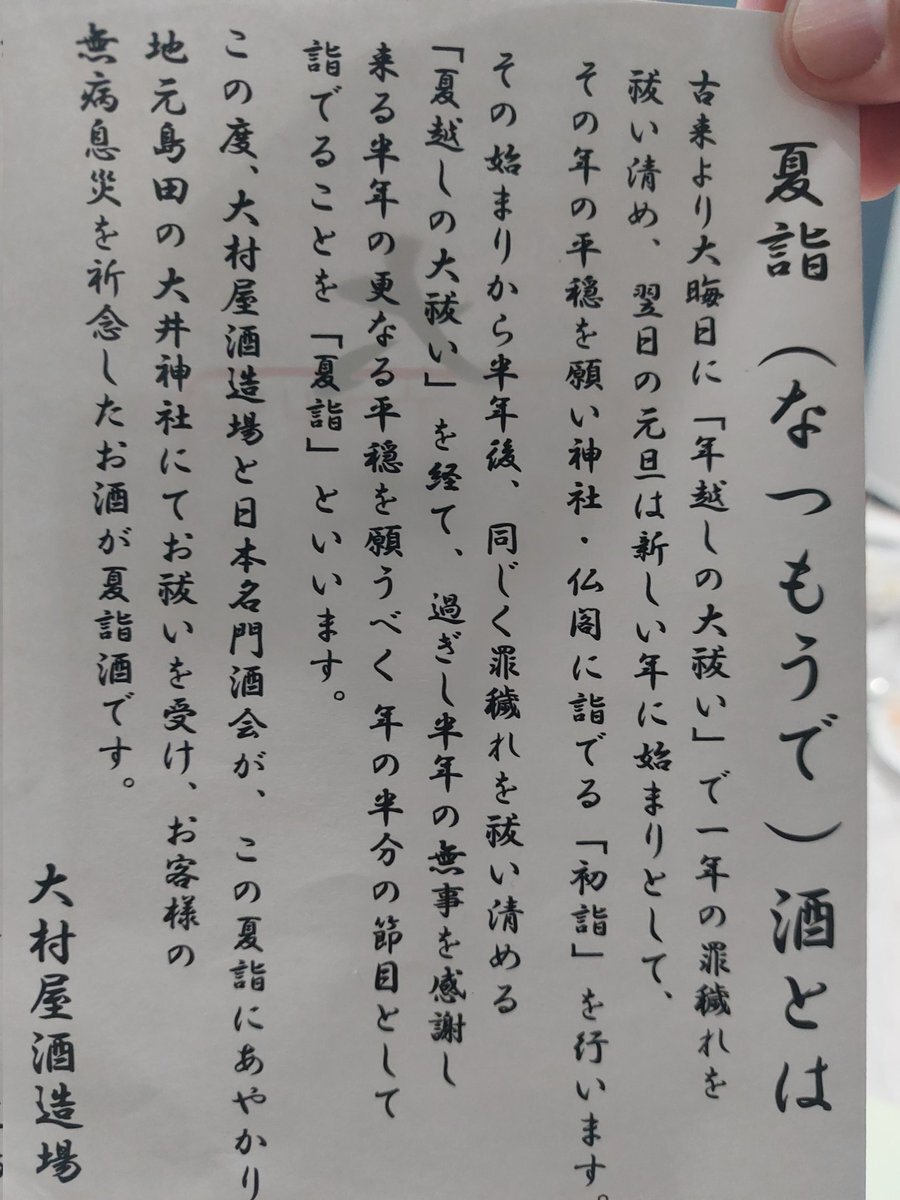 夏詣(なつもうで)酒とは
古来より大晦日に「年越しの大祓い」で一年の罪穢れを
祓い清め、翌日の元旦は新しい年に始まりとして、
その年の平穏を願い神社・仏閣に詣でる「初詣」を行います。
その始まりから半年後、同じく罪穢れを祓い清める
「夏越しの大祓い」を経て、過ぎし半年の無事を感謝し
来る半年の更なる平穏を願うべく年の半分の節目として
詣でることを「夏詣」といいます。
この度、大村屋酒造場と日本名門酒会が、この夏詣にあやかり
地元島田の大井神社にてお祓いを受け、お客様の
無病息災を祈念したお酒が夏詣酒です。
大村屋酒造場